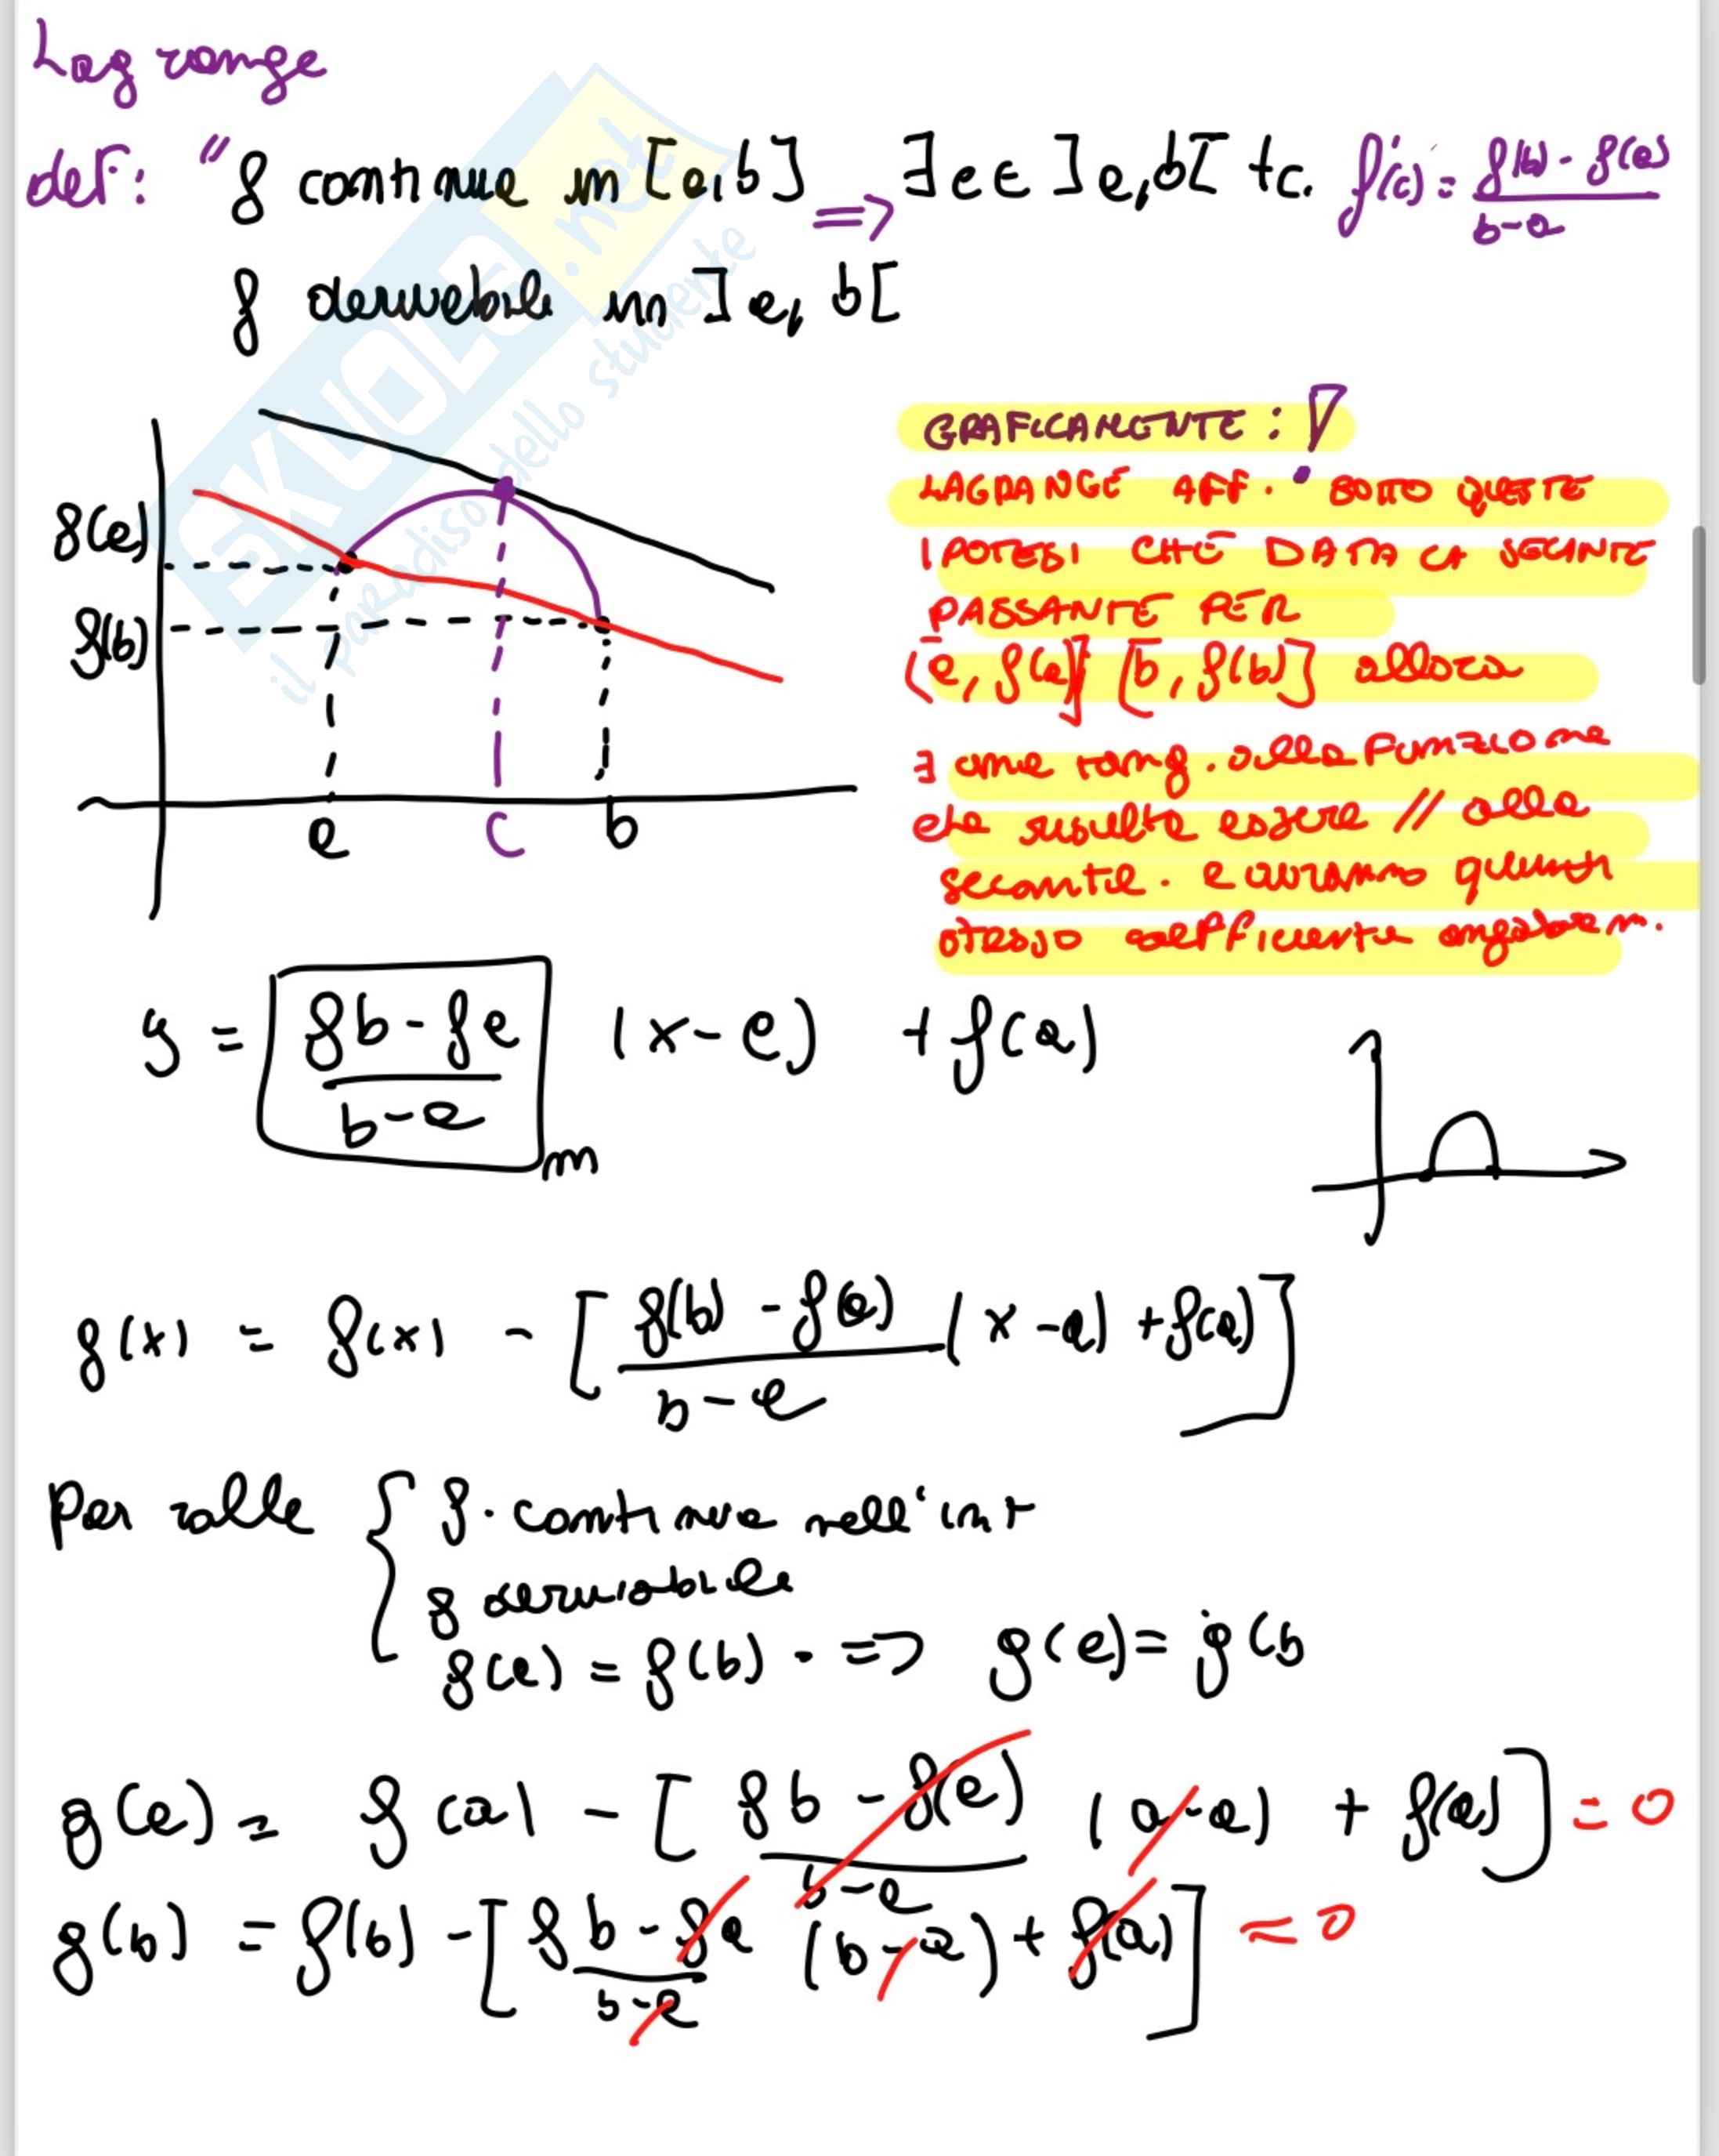 Lagrange
def: "f continua in [a,b] => ∃ c ∈ ]a,b[ tc. f'(c) = f(b) - f(a) / b-a
f derivabile in ]a, b[
f(a)
f(b)
a c b
GRAFICAMENTE:
LAGRANGE AFF. SOTTO QUESTE
IPOTESI CHE DATA LA SECANTE
PASSANTE PER
[a, f(a)] [b, f(b)] allora
∃ una tang. alla funzione
che risulta essere // alla
secante. e avranno quindi
stesso coefficiente angolare m.
y = fb - fa / b-a (x-a) + f(a)
m
g(x) = f(x) - [f(b) - f(a) / b-a (x-a) + f(a)]
Per rolle { f. continua nell'int
f derivabile
f(a) = f(b). => g(a) = g(b
g(a) = f(a) - [fb - f(a) / b-a (a-a) + f(a)] = 0
g(b) = f(b) - [fb - fa / b-a (b-a) + f(a)] = 0
SKUOLA.net
il paradiso dello studente